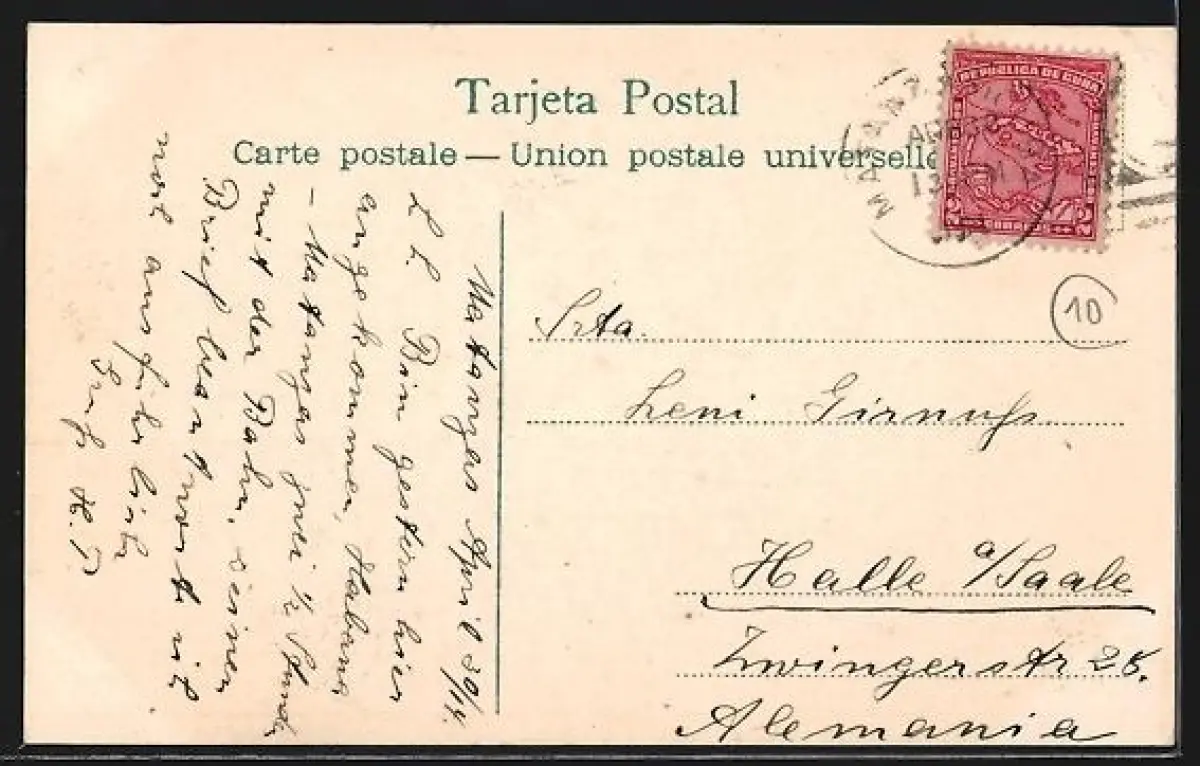 Tarjeta Postal
Carte postale — Union postale universelle
REPUBLICA DE CUBA
2 CORREOS 2
MATANZAS
10
Srta.
Leni
Halle a/Saale
Zwingerstr 25.
Alemania
Matanzas April 30/14.
L L. Bin gestern hier
angekommen, Habana
– Matanzas zwei 1/2 Stunde
mit der Bahn, deinen
Brief beantwort ich
noch ausführlich
Gruß H.T